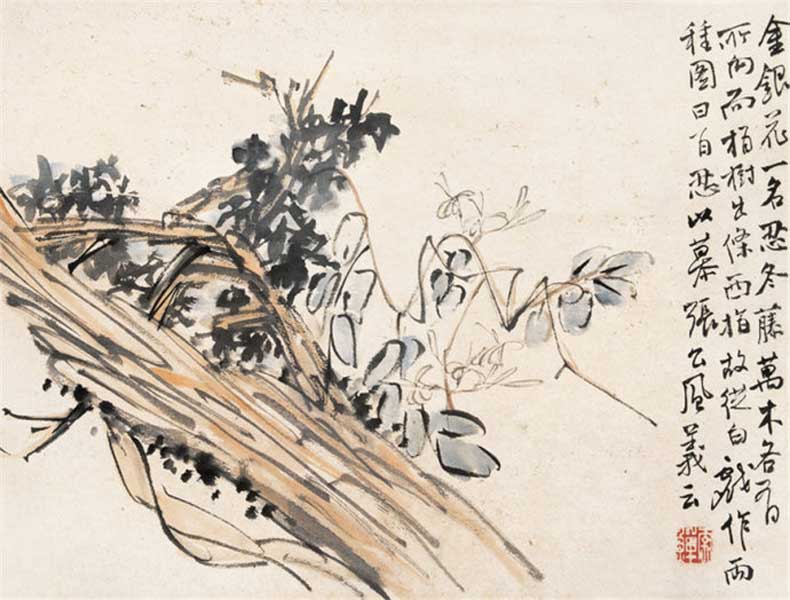 金銀花一名忍冬藤萬木各有
所向而柏樹生條西指故從白戲作兩
種圖曰百忍以慕張公風義云